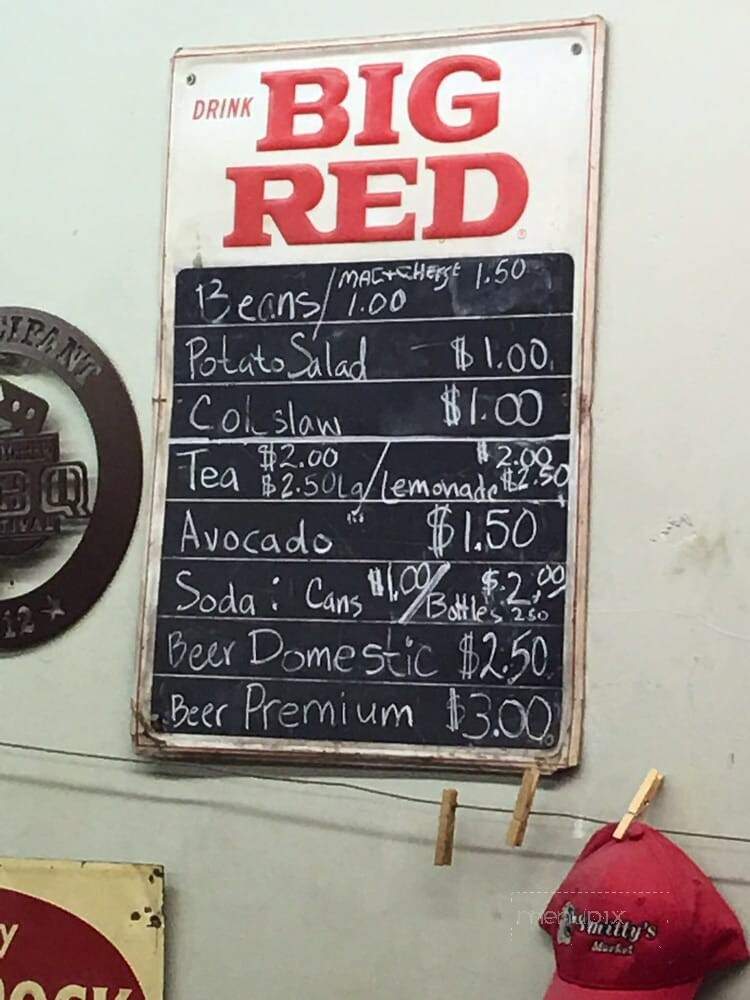 DRINK BIG
RED
Beans/ MAC+CHEESE 1.50
1.00
Potato Salad $1.00
Colslaw $1.00
Tea $2.00 / $2.00
$2.50 Lg Lemonade $2.50
Avocado $1.50
Soda: Cans $1.00 / $2.00
Bottles 250
Beer Domestic $2.50
Beer Premium $3.00
CIPANT
BQ
12
Smitty's
Market
menupix